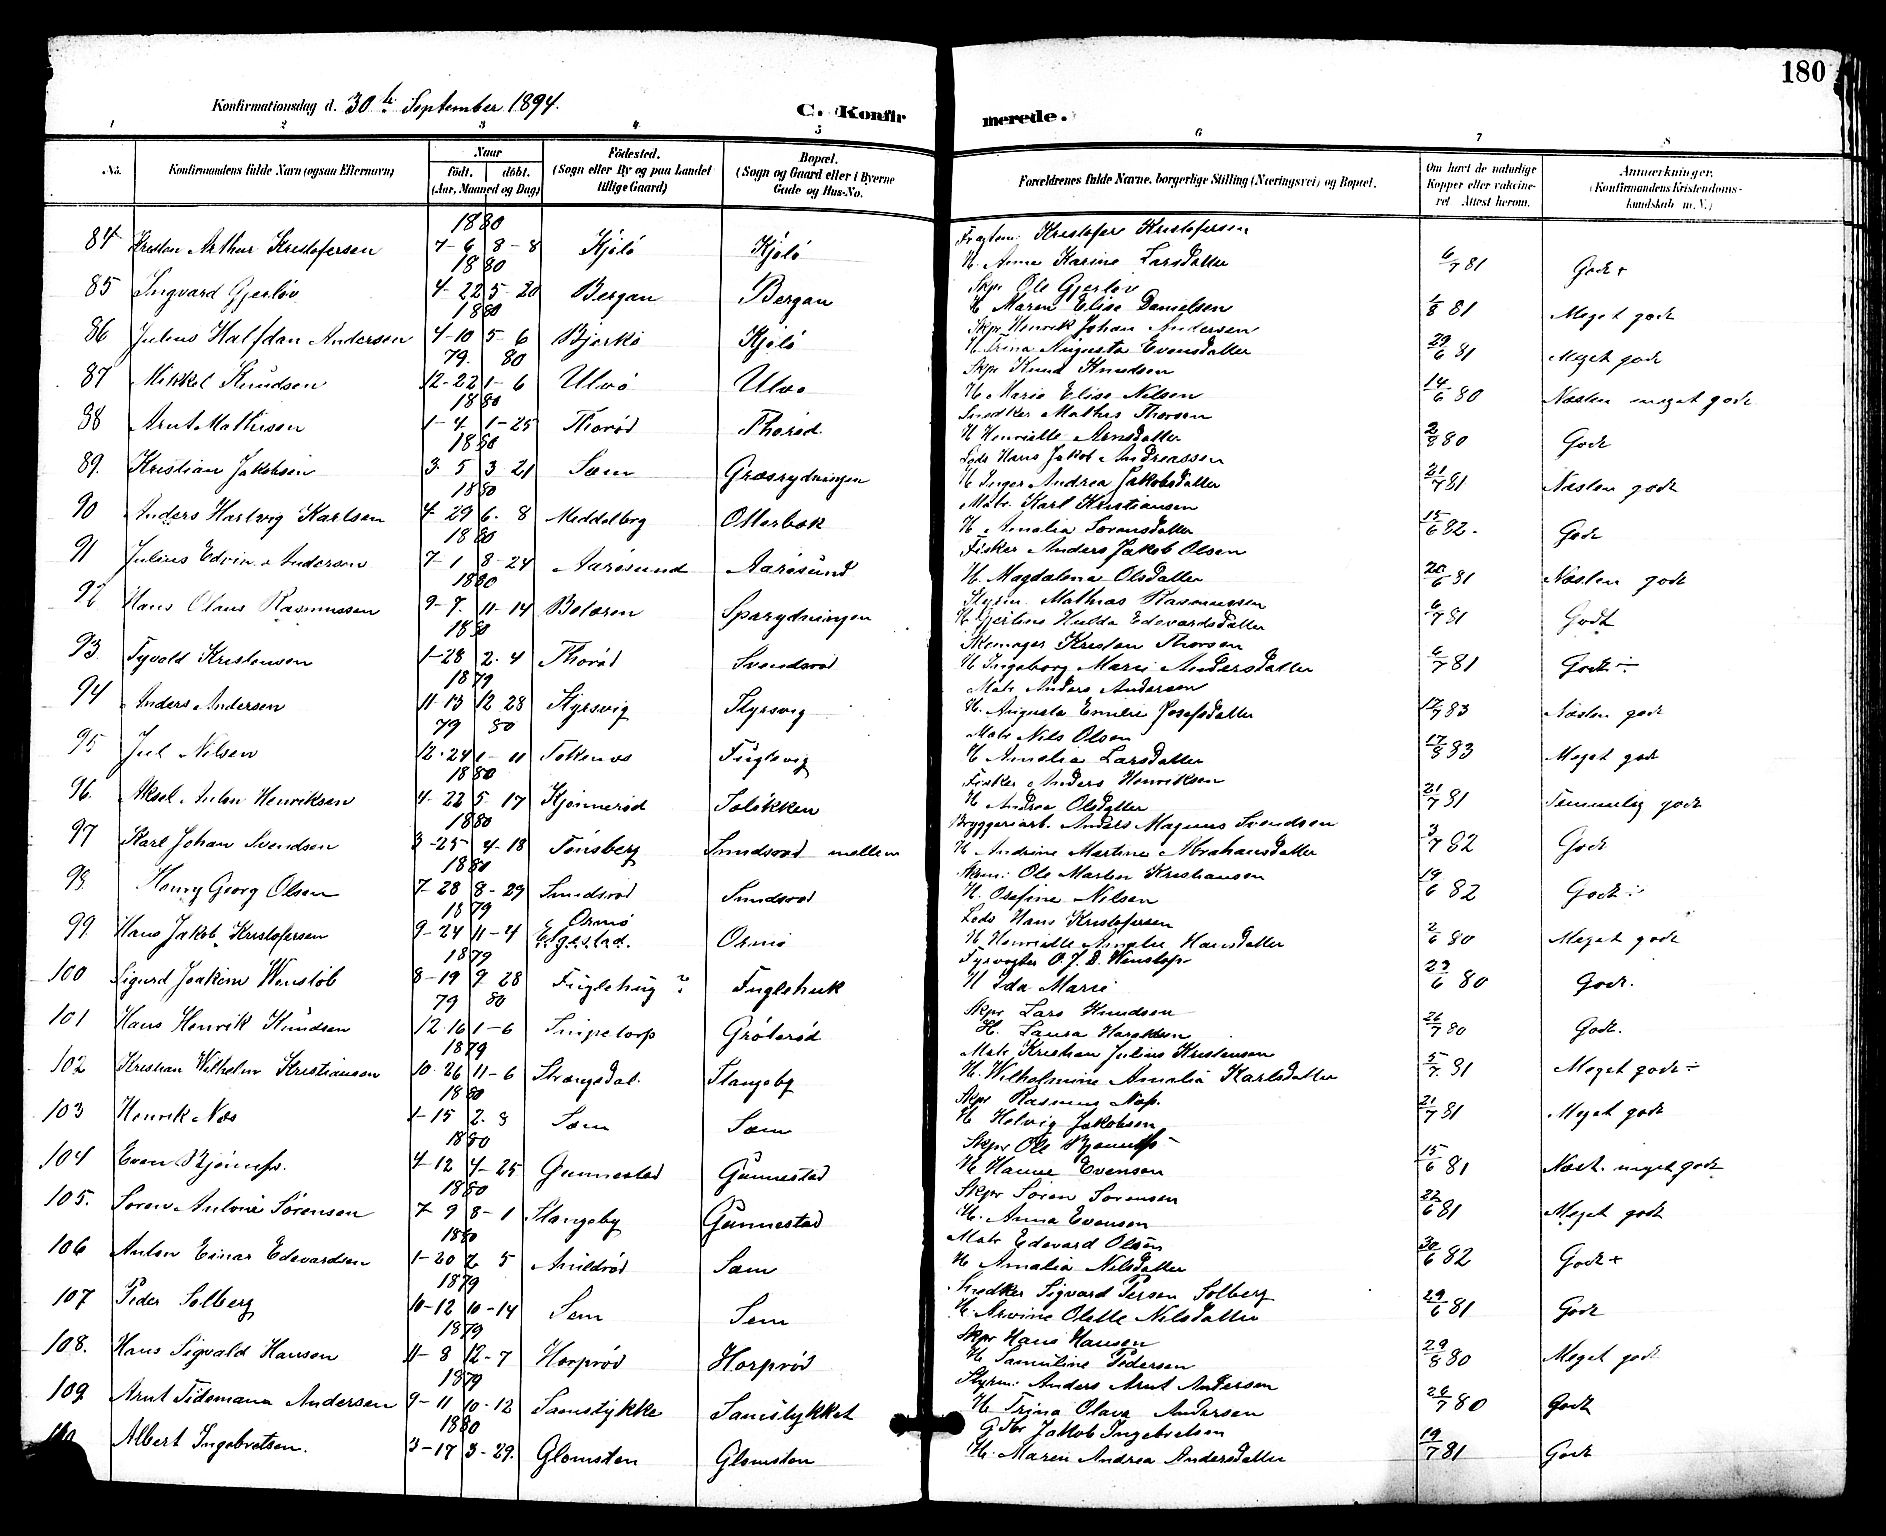 180
Konfirmationsdag d. 30te September 1894.
C. Konfirmerede.
1 2 3 4 5 6 7 8
No. Konfirmandens fulde Navn (ogsaa Efternavn) Naar Födested. Bopæl. Forældrenes fulde Navne, borgerlige Stilling (Næringsvei) og Bopæl. Om havt de naturlige Anmærkninger.
födt. döbt. (Sogn eller By og paa Landet (Sogn og Gaard eller i Byerne Kopper eller vaccine- (Konfirmandens Kristendoms-
(Aar, Maaned og Dag) tillige Gaard) Gade og Hus-No. ret. Attest herom. kundskab m. V.)
1880 Kristofer Kristofersen
84 Kristian Arthur Kristofersen 7-6 8-8 Kjölö Kjölö H. Anna Karine Larsdatter 6/7 81 Godt+
1880 Skpr Ole Gjerlöv
85 Ingvard Gjerlöv 4-22 5-20 Bergan Bergan H Maren Elise Danielsen 1/8 81 Meget godt
1880 Skpr Henrik Johan Andersen
86 Julius Halfdan Andersen 4-10 5-6 Bjerkö Kjölö H. Trina Augusta Evensdatter 29/6 81 Meget godt
79. 80 Skpr Knud Knudsen
87 Mikkel Knudsen 12-22 1-6 Ulvö Ulvö H. Marie Elise Nilsen 14/6 80 Næsten meget godt
1880 Snedker Mathis Thorsen
88 Arnt Mathisen 1-4 1-25 Thoröd Thoröd H Henriette Arnsdatter 2/8 80 Godt
1880 Lods Hans Jakob Andreassen
89. Kristian Jakobsen 3-5 3-21 Sæm Græsrydningen H Inger Andrea Jakobsdatter 21/7 81 Næsten godt
1880 Matr. Karl Kristiansen
90 Anders Hartvig Karlsen 4-29 6-8 Meddelborg Otterbæk H. Amalia Sorensdatter 15/6 82. Godt
1880 Fisker Anders Jakob Olsen
91 Julius Edvin Andersen 7-1 8-24 Aarösund Aarösund H. Magdalena Olsdatter 20/6 81 Næsten godt
1880 Styrm. Mathias Rasmussen
92 Hans Olaus Rasmussen 9-7. 11-14 Bolæren Sparydningen H. Gjertine Hulda Edevardsdatter 6/7 81 Godt
1880 Skomager Kristen Thorsen
93. Tyvald Kristensen 1-28 2-4 Thoröd Svendsröd H. Ingeborg Marie Andersdatter 6/7 81 Godt ÷
1879 Matr Anders Andersen
94 Anders Andersen 11-13 12 28 Styrsvig Styrsvig H. Augusta Emilie Josefsdatter 17/7 83 Næsten godt
79 80 Matr Nils Olsen
95 Jul Nilsen 12-24 1-11 Fuglevig H Amalia Larsdatter 17/8 83 Meget godt
1880 Fisker Anders Henriksen
96. Aksel Anton Henriksen 4-22 5-17 Kjönneröd Solökken H Andrea Olsdatter 21/7 81 Temmelig godt
1880 Bryggeriarb. Anders Magnus Svendsen
97 Karl Johan Svendsen 3-25 4-18 Tönsberg Smidsröd mellem H Andrine Martine Abrahamsdatter 3/7 82 Godt
1880 Ole Martin Kristiansen
98 Henry Georg Olsen 7-28 8-29 Smidsröd Smidsröd H. Osefine Nilsen 19/6 82 Godt ÷
1879 Ormö Lods Hans Kristofersen
99. Hans Jakob Kristofersen 9-24 11-4 Elgestad. Ormö H. Henriette Amalie Hansdatter 2/6 80 Meget godt
1879 Fyrvogter O. J. D. Wenstöp
100 Sigurd Joakim Wenstöb 8-19 9 28 Fuglehug ? Fuglehuk H Ida Marie 23/6 80 Godt.
79 80 Skpr Lars Knudsen
101 Hans Henrik Knudsen 12-16 1-6 Snipetorp Gröteröd H. Laura Haraldsen 26/7 80 Godt.
1879 Matr Kristian Julius Kristensen
102 Kristian Wilhelm Kristiansen 10-26 11-6 Strængsdal. Stangeby H. Wilhelmine Amalia Karlsdatter 5/7. 81 Meget godt ÷
1880 Skpr Rasmus Næs.
103 Henrik Næs 1-15 2-8 Sæm Sæm H Helvig Jakobsen 21/7 81 Meget godt
1880 Skpr Ole Bjönnes
104 Even Bjönnes. 4-12 4-25 Gunnestad Gunnestad H Hanne Evensen 15/6 81 Næst. meget godt
1880 Skpr Sören Sörensen
105. Sören Antoni Sörensen 7-9 8-1 Stangeby Gunnestad H. Anna Evensen 22/6 81 Meget godt
1880 Matr Edevard Olsen
106 Anton Einar Edevardsen 1-20 2 5 Amildröd Sæm H Amalia Nilsdatter 30/6 82 Godt+
1879 Snedker Sigvard Person Solberg
107 Peder Solberg 10-12 10-14 Sem Sem H. Arvine Olette Nilsdatter 29/6 81 Godt
1879 Skpr Hans Hansen
108. Hans Sigvald Hansen 11-8 12-7 Horpröd Horpröd H Samuline Pedersen 29/8 80 Meget godt
1879 Styrm: Anders Arnt Andersen
109 Arnt Tidemann Andersen 9-11 10-12 Sæmstykke Sæmstykket H Trina Olava Andersen 26/7 80 Godt
1880 Gbr Jakob Ingebretsen
110 Albert Ingebretsen. 3-17 3-29. Glomsten Glomsten H. Maren Andrea Andersdatter 19/7 81 Godt